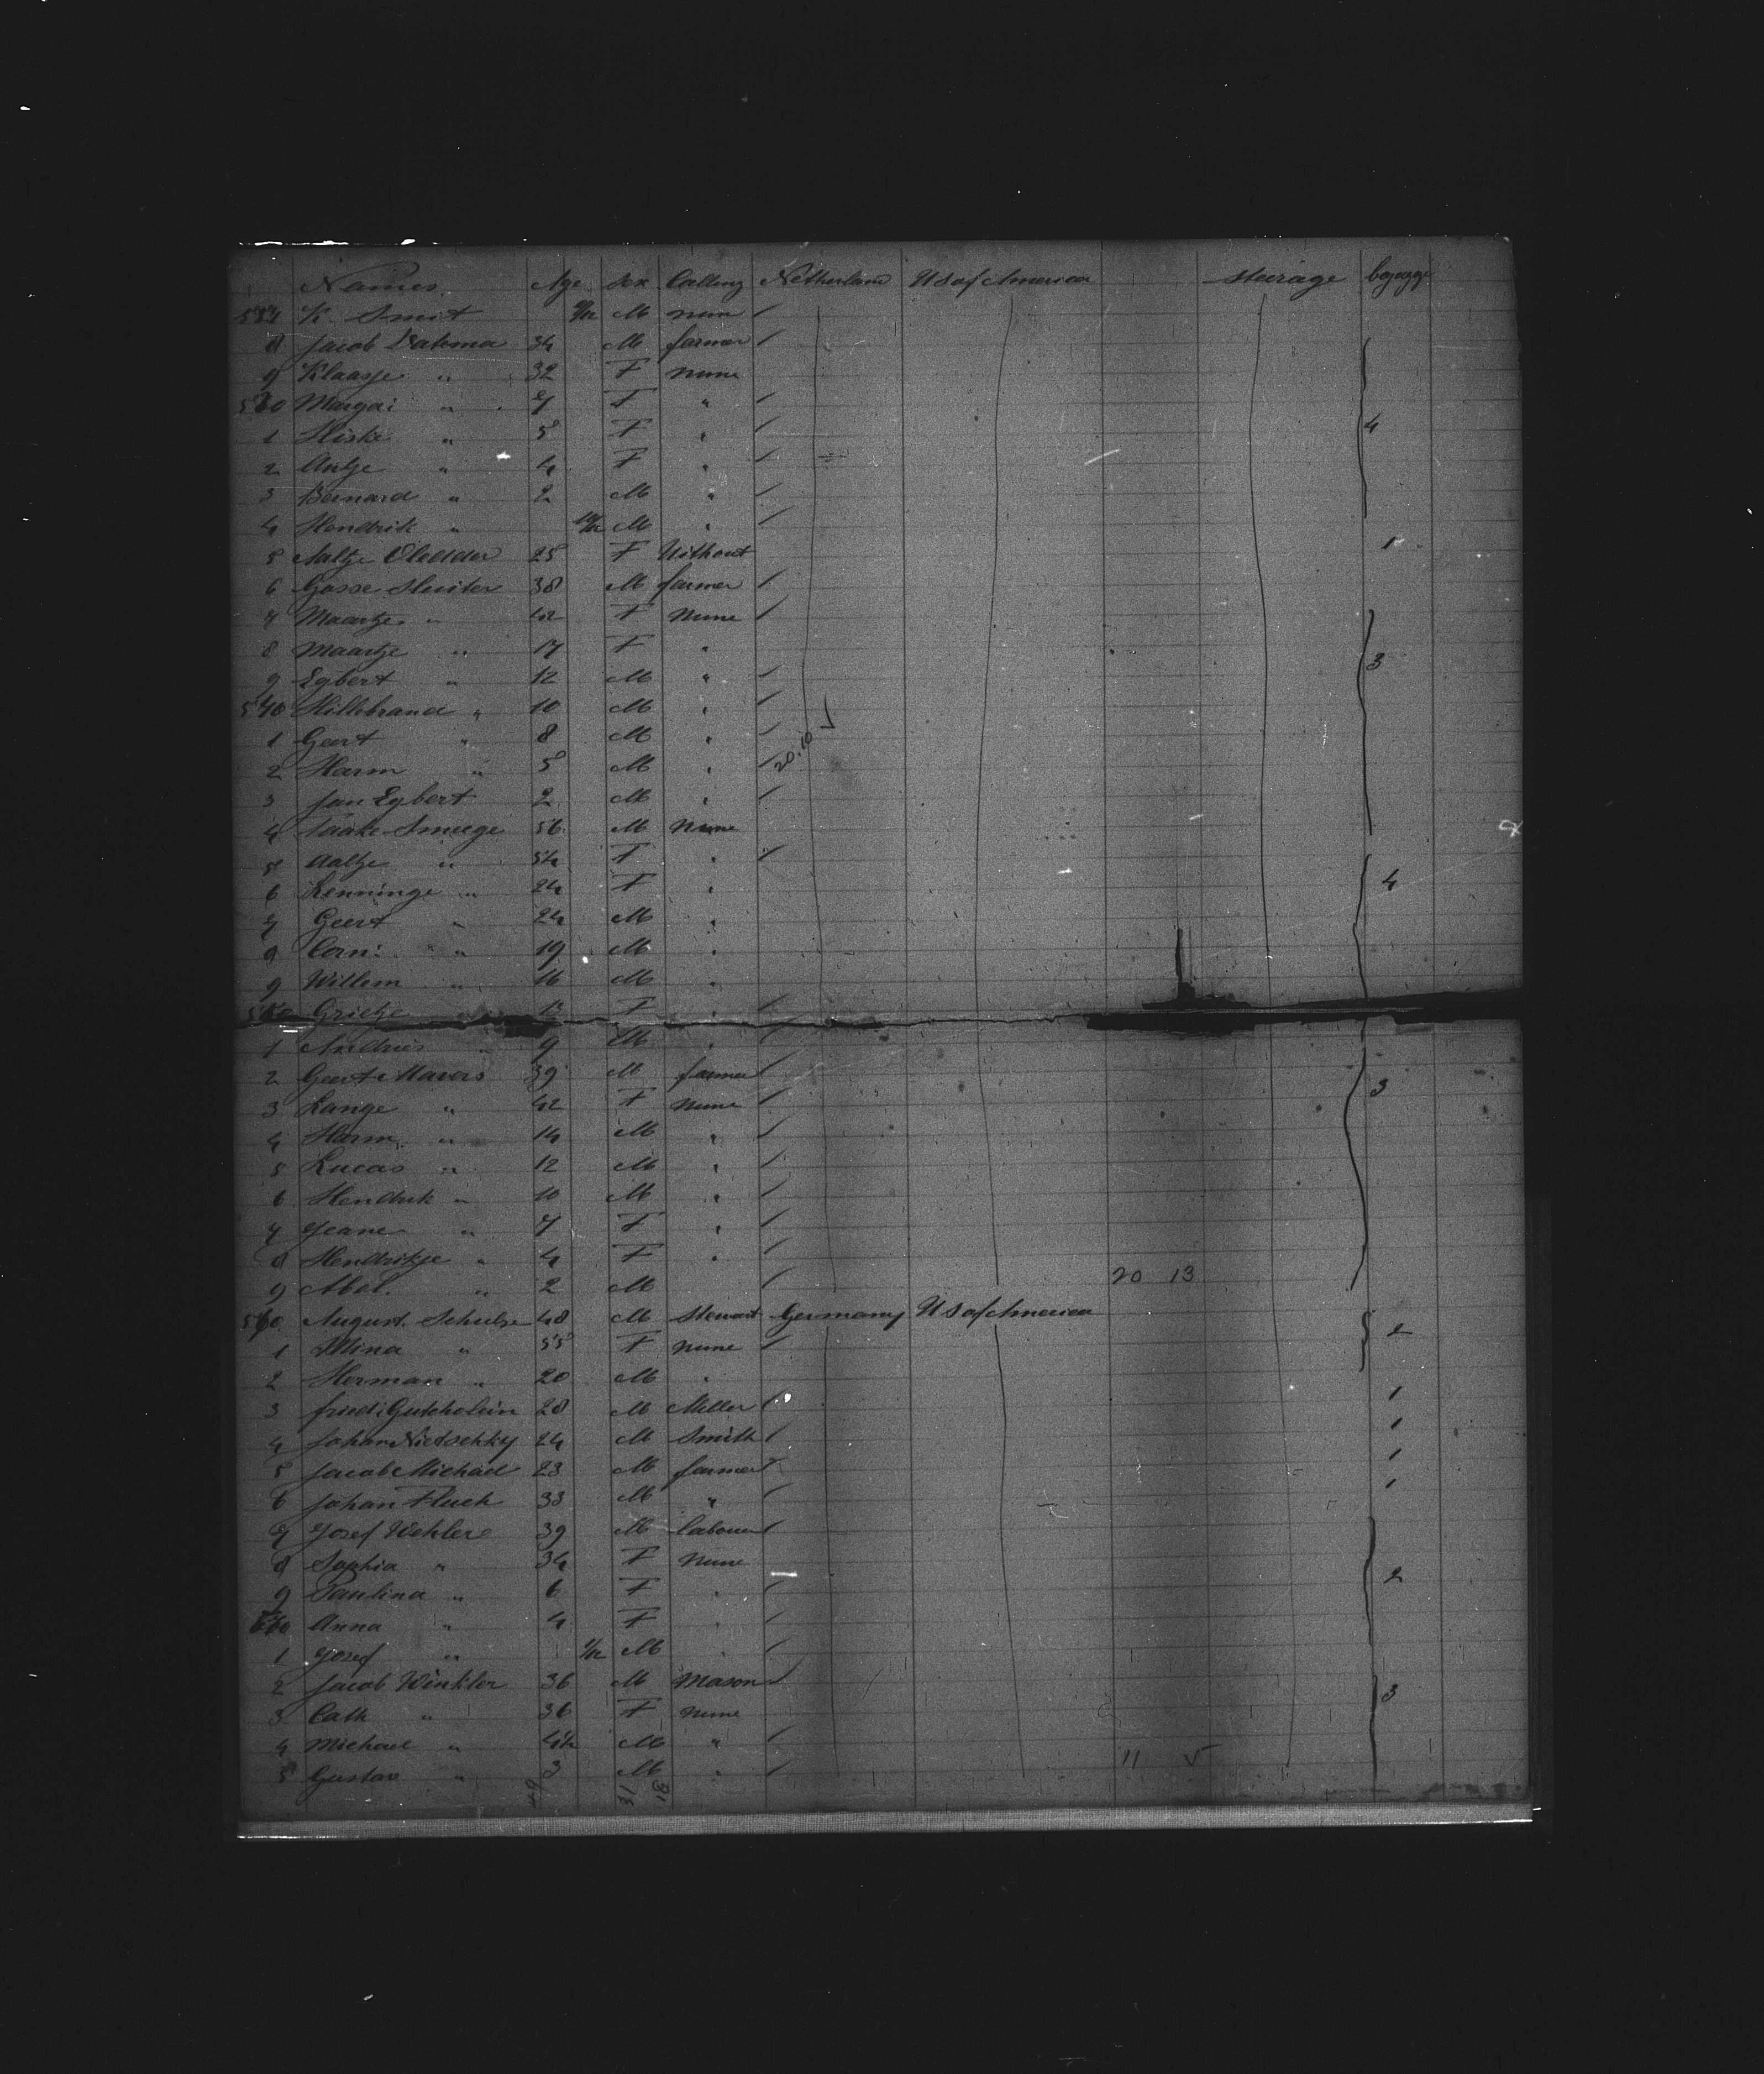 Names Age Sex Calling Netherland US of America Steerage bagage
K. Smit /12 M none
8 Jacob 34 M farmer
9 Klaasje " 32 F none
Margai " 7 F " 4
1 Hiske " 5 F "
2 Antje " 4 F "
3 Bernard " 2 M "
4 Hendrik " 10/12 M "
5 Aaltje 25 F Without 1
6 Gosse Sluiter 38 M farmer
7 Maartje " 42 F None
8 Maartje " 17 F "
9 Egbert " 12 M " 3
540 Hillebrand " 10 M "
1 Geert " 8 M "
2 Harm " 5 M " 20.10
3 Jan Egbert 2 M "
4 Taake Smeege 56 M None
5 Aaltje " 54 F "
6 Lenninge " 24 F " 4
7 Geert " 24 M "
8 Corn: " 19 M "
9 Willem " 16 M "
Grietje F "
1 Andries " 9 M "
2 Geert Mavers 39 M farmer
3 Lange " 42 F None 3
4 Harm " 14 M "
5 Lucas " 12 M "
6 Hendrik " 10 M "
7 Jeane " 7 F "
8 Hendrikje " 4 F "
9 Abel. " 2 M 20 13
560 August Schulze 48 M Steward Germany US of America
1 Mina " 55 F none 2
2 Herman " 20 M "
3 fried: 28 M Miller 1
4 Johan Nietschky 24 M Smith 1
5 Jacob Michael 23 M farmer 1
6 Johan Fluch 33 M " 1
7 Josef Wehlere 39 M labouer
8 Sophia " 34 F None
9 Paulina " 6 F " 2
Anna " 4 F "
1 Josef " /12 M "
2 Jacob Winkler 36 M Mason 3
3 Cath " 36 F none
4 Michael " M "
5 Gustav " 3 M " 11 V
31 18